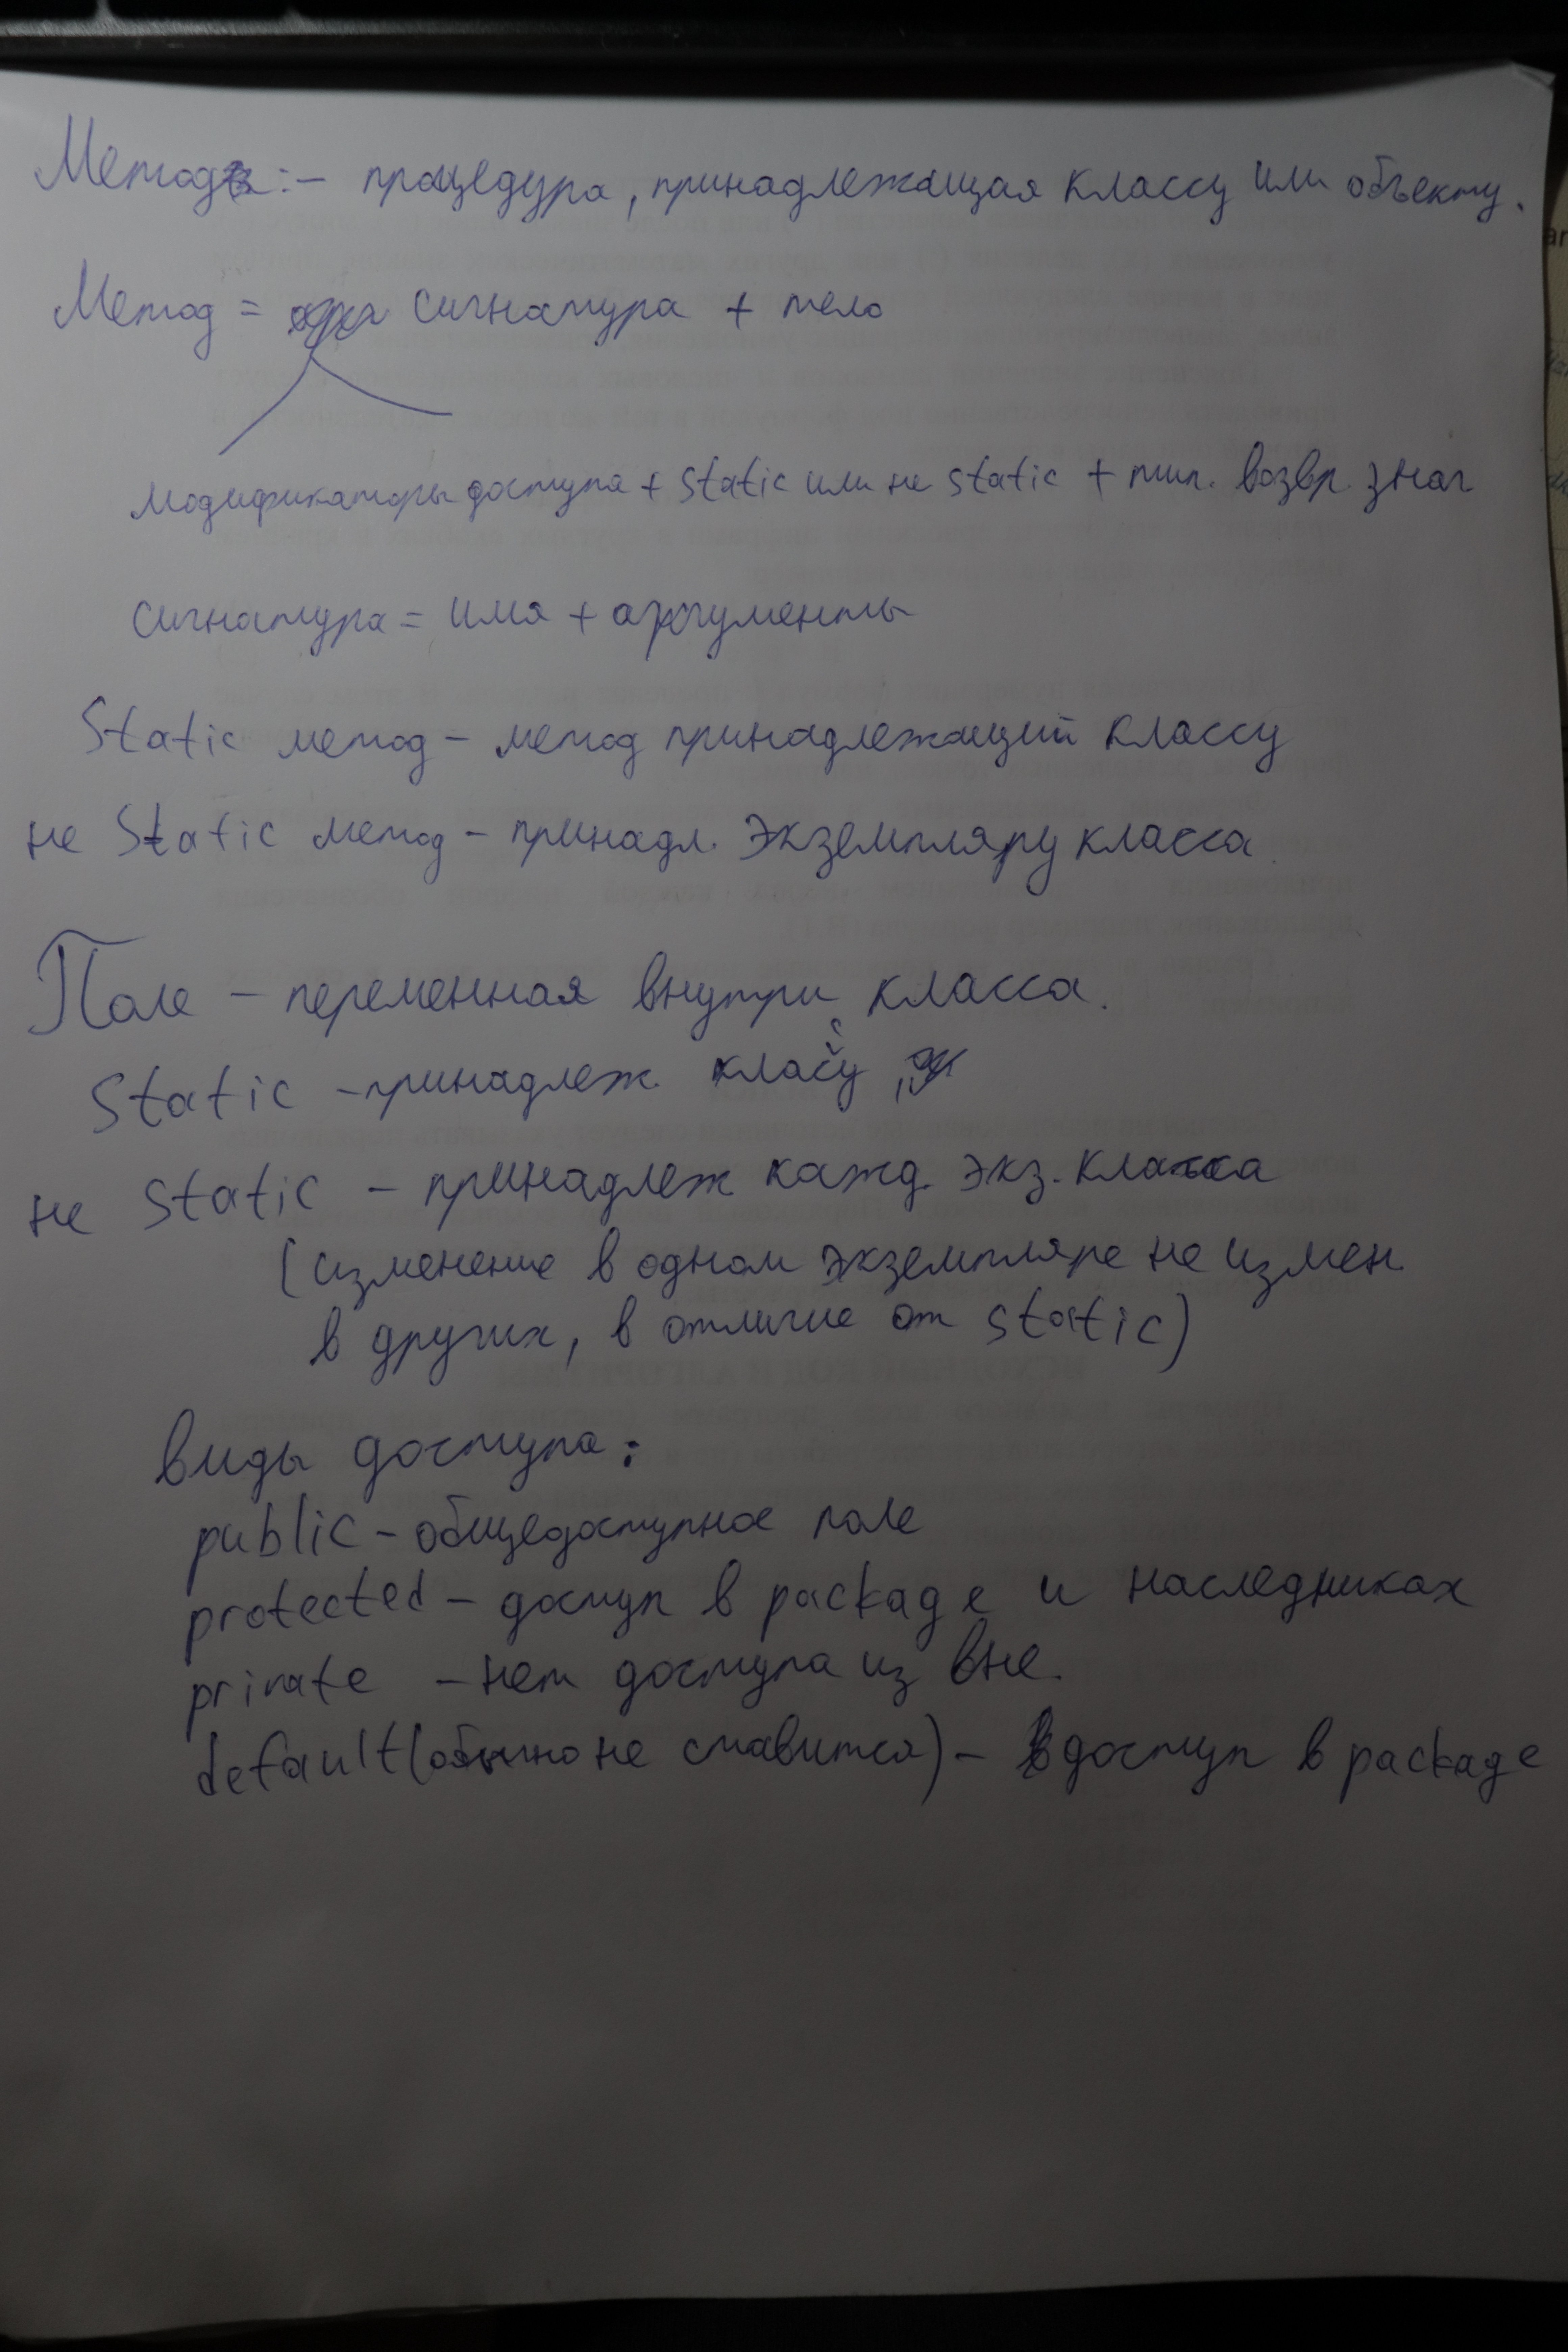 Метод :- процедура, принадлежащая классу или объекту.
Метод = сигнатура + тело
модификаторы доступа + static или не static + тип. возвр. знач
сигнатура = имя + аргументы
Static метод - метод принадлежащий классу
не Static метод - принадл. экземпляру класса
Поле - переменная внутри класса.
Static - принадлеж. классу,
не static - принадлеж кажд. экз. класса
(изменение в одном экземпляре не измен.
в других, в отличие от static)
виды доступа:
public - общедоступное поле
protected - доступ в package и наследниках
private - нет доступа из вне.
default (обычно не ставится) - доступ в package